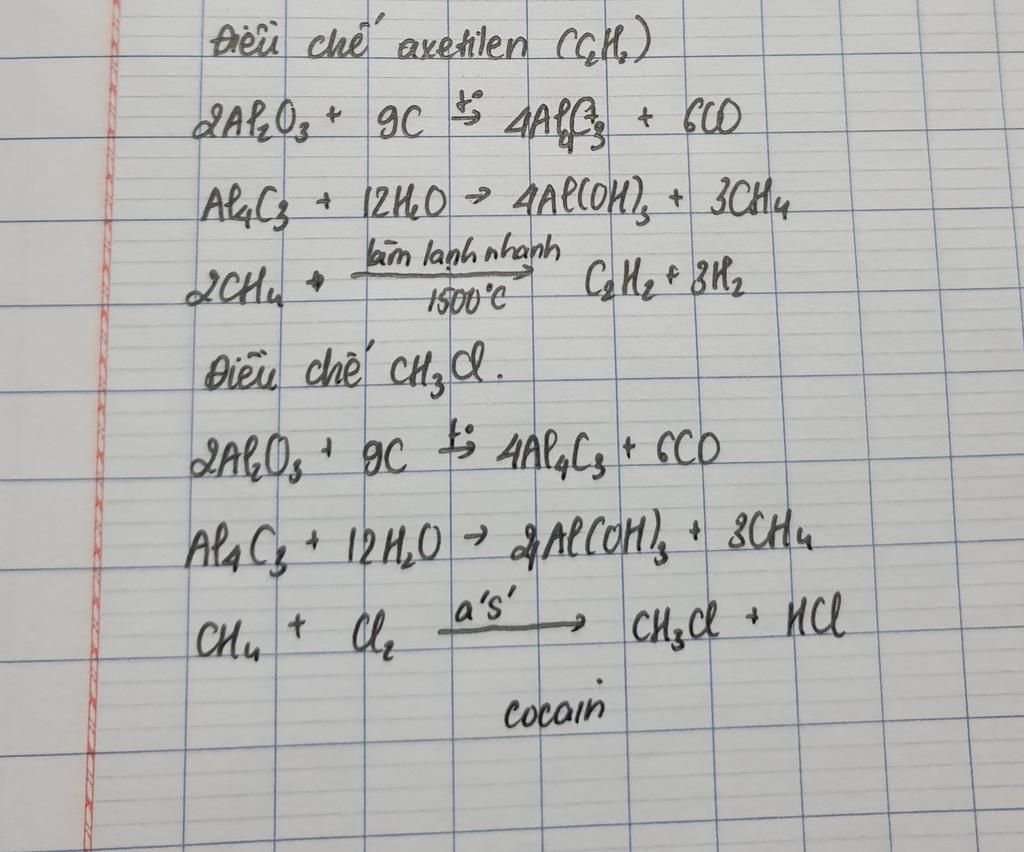 Điều chế axetilen (C₂H₂)
2Al₂O₃ + 9C t°→ 4Al₄C₃ + 6CO
Al₄C₃ + 12H₂O → 4Al(OH)₃ + 3CH₄
làm lạnh nhanh
2CH₄ → C₂H₂ + 3H₂
1500°C
Điều chế CH₃Cl.
2Al₂O₃ + 9C t°→ 4Al₄C₃ + 6CO
Al₄C₃ + 12H₂O → 4Al(OH)₃ + 3CH₄
CH₄ + Cl₂ a's'→ CH₃Cl + HCl
cocain